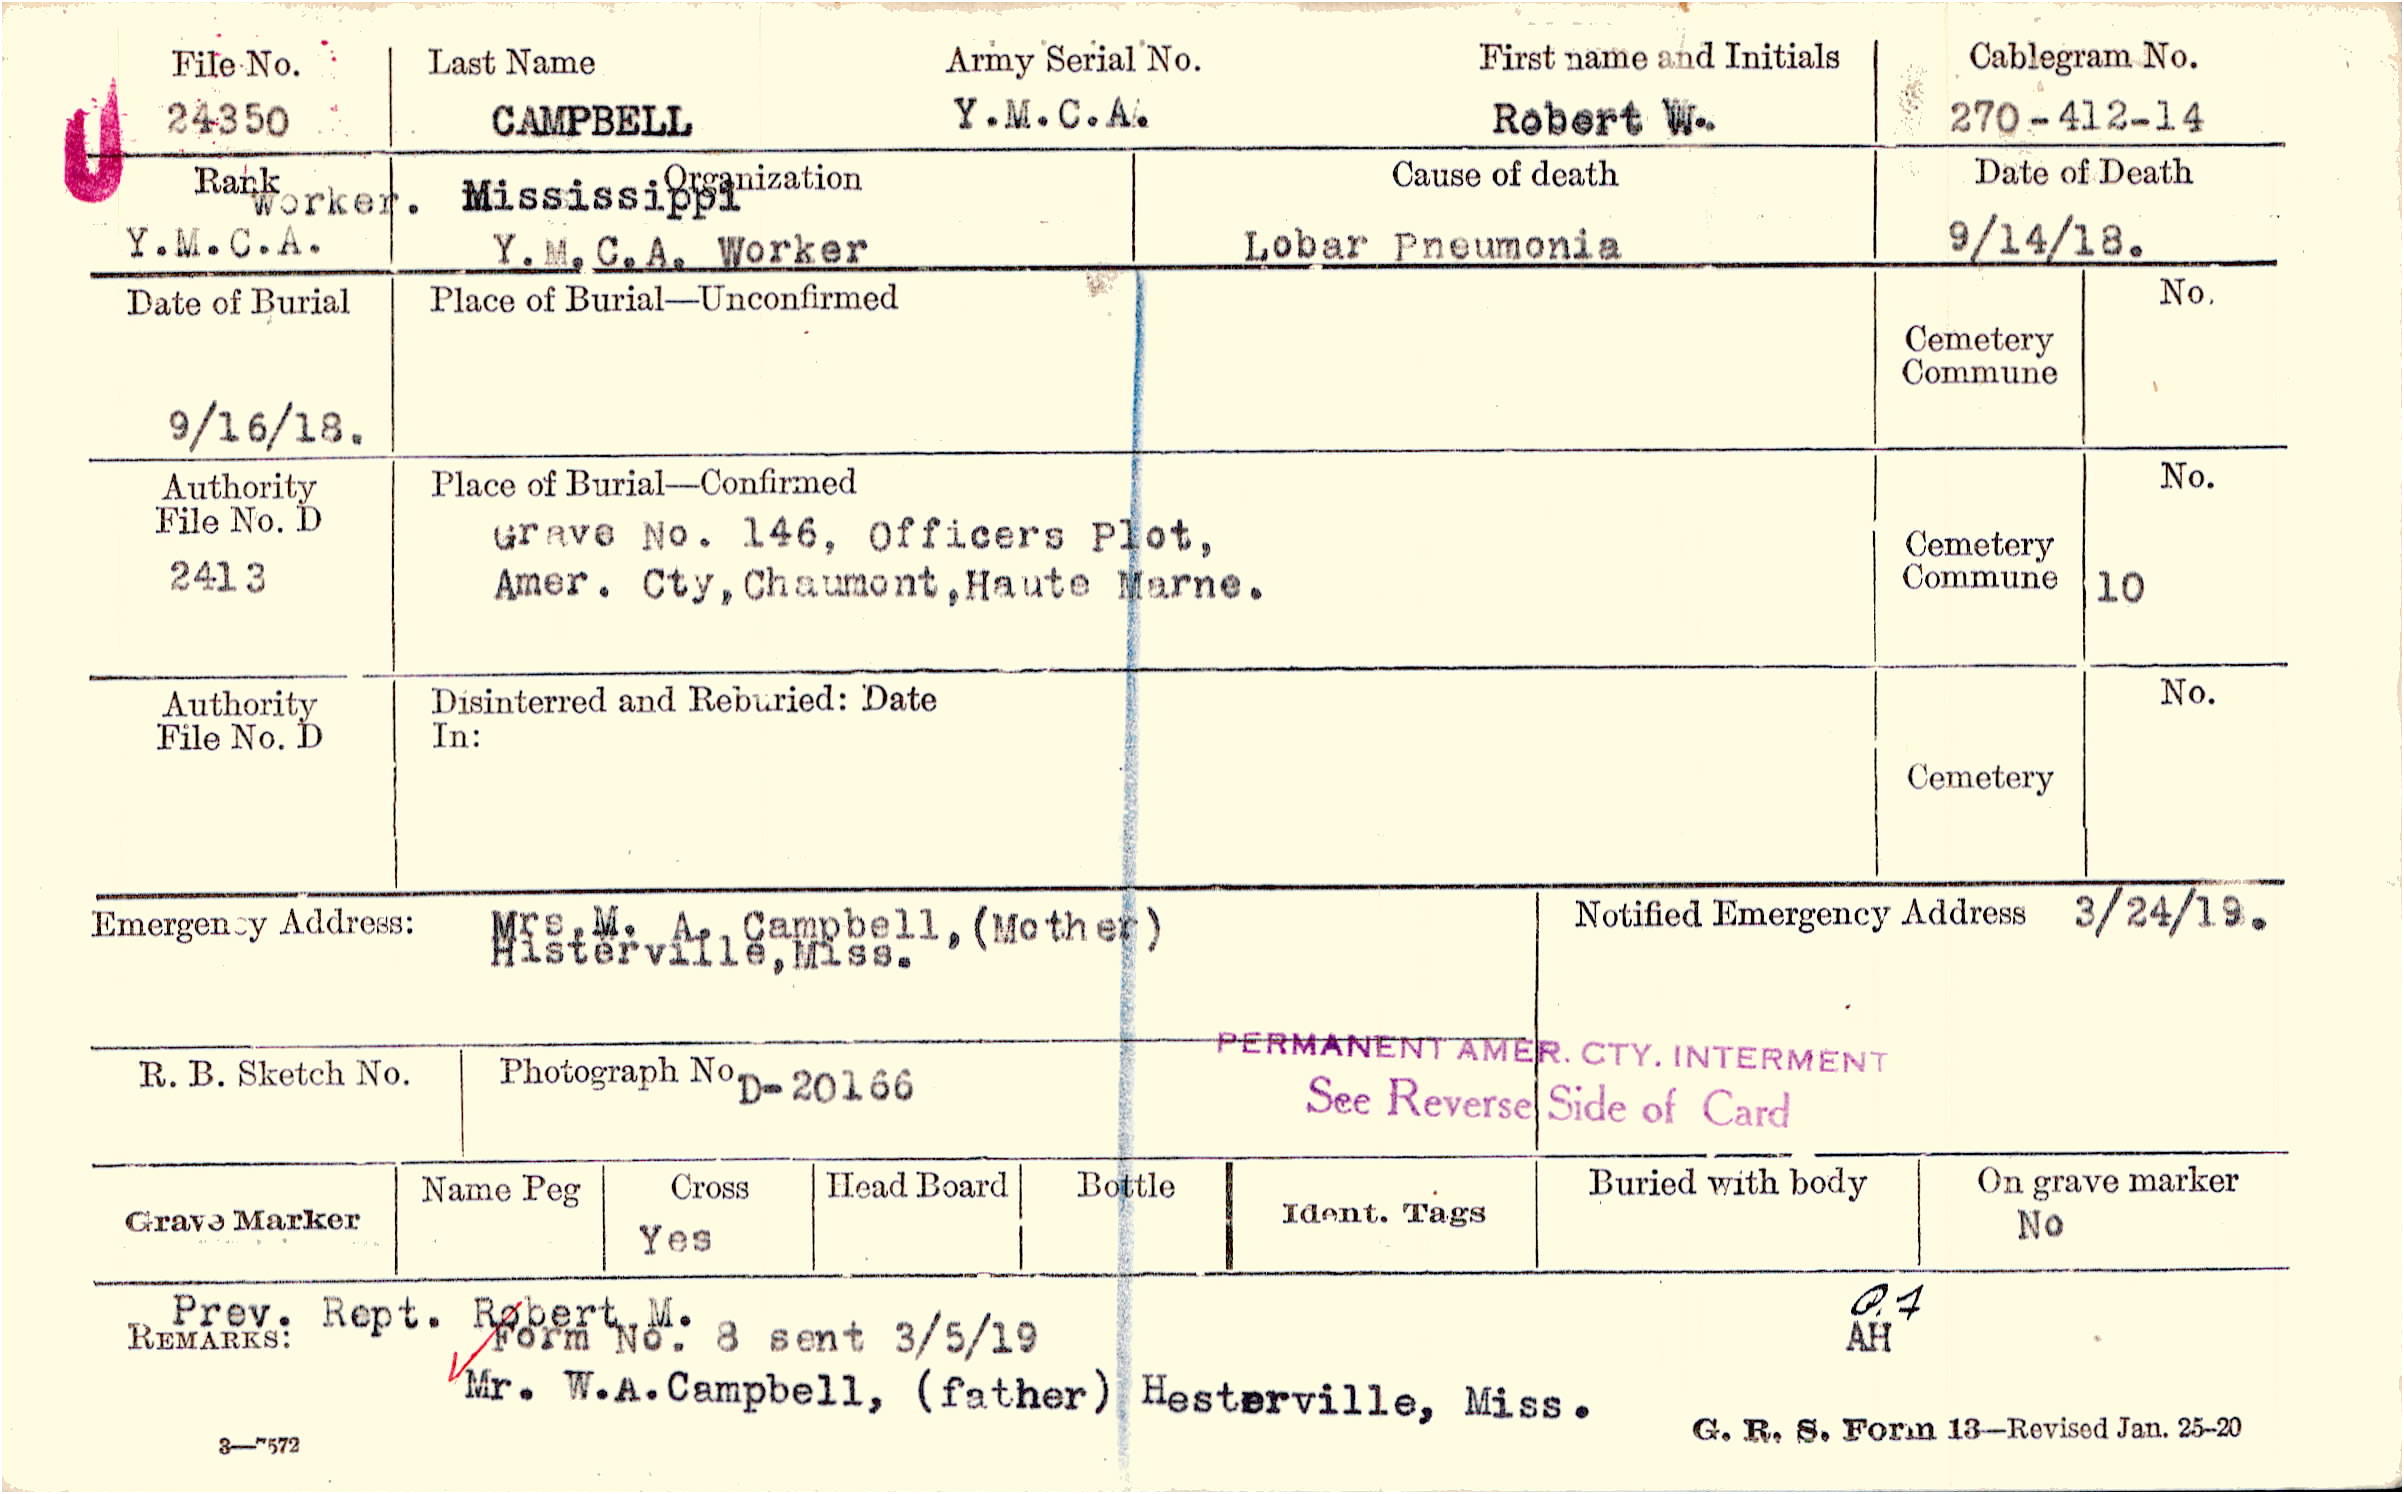 File No. Last Name Army Serial No. First name and Initials Cablegram No.
24350 CAMPBELL Y.M.C.A. Robert W. 270-412-14
Rank Organization Cause of death Date of Death
Worker. Mississippi
Y.M.C.A. Y.M.C.A. Worker Lobar Pneumonia 9/14/18.
Date of Burial Place of Burial—Unconfirmed No.
Cemetery
Commune
9/16/18.
Authority Place of Burial—Confirmed No.
File No. D
Grave No. 146, Officers Plot, Cemetery
2413 Amer. Cty,Chaumont,Haute Marne. Commune 10
Authority Disinterred and Reburied: Date No.
File No. D In:
Cemetery
Emergency Address: Mrs.M. A. Campbell,(Mother) Notified Emergency Address 3/24/19.
Histerville,Miss.
PERMANENT AMER. CTY. INTERMENT
R. B. Sketch No. Photograph No. D-20166
See Reverse Side of Card
Name Peg Cross Head Board Bottle Buried with body On grave marker
Grave Marker Yes Ident. Tags No
Prev. Rept. Robert M.
REMARKS: Form No. 8 sent 3/5/19 AH
Mr. W.A.Campbell, (father) Hesterville, Miss.
3—7572 G. R. S. Form 13—Revised Jan. 25-20